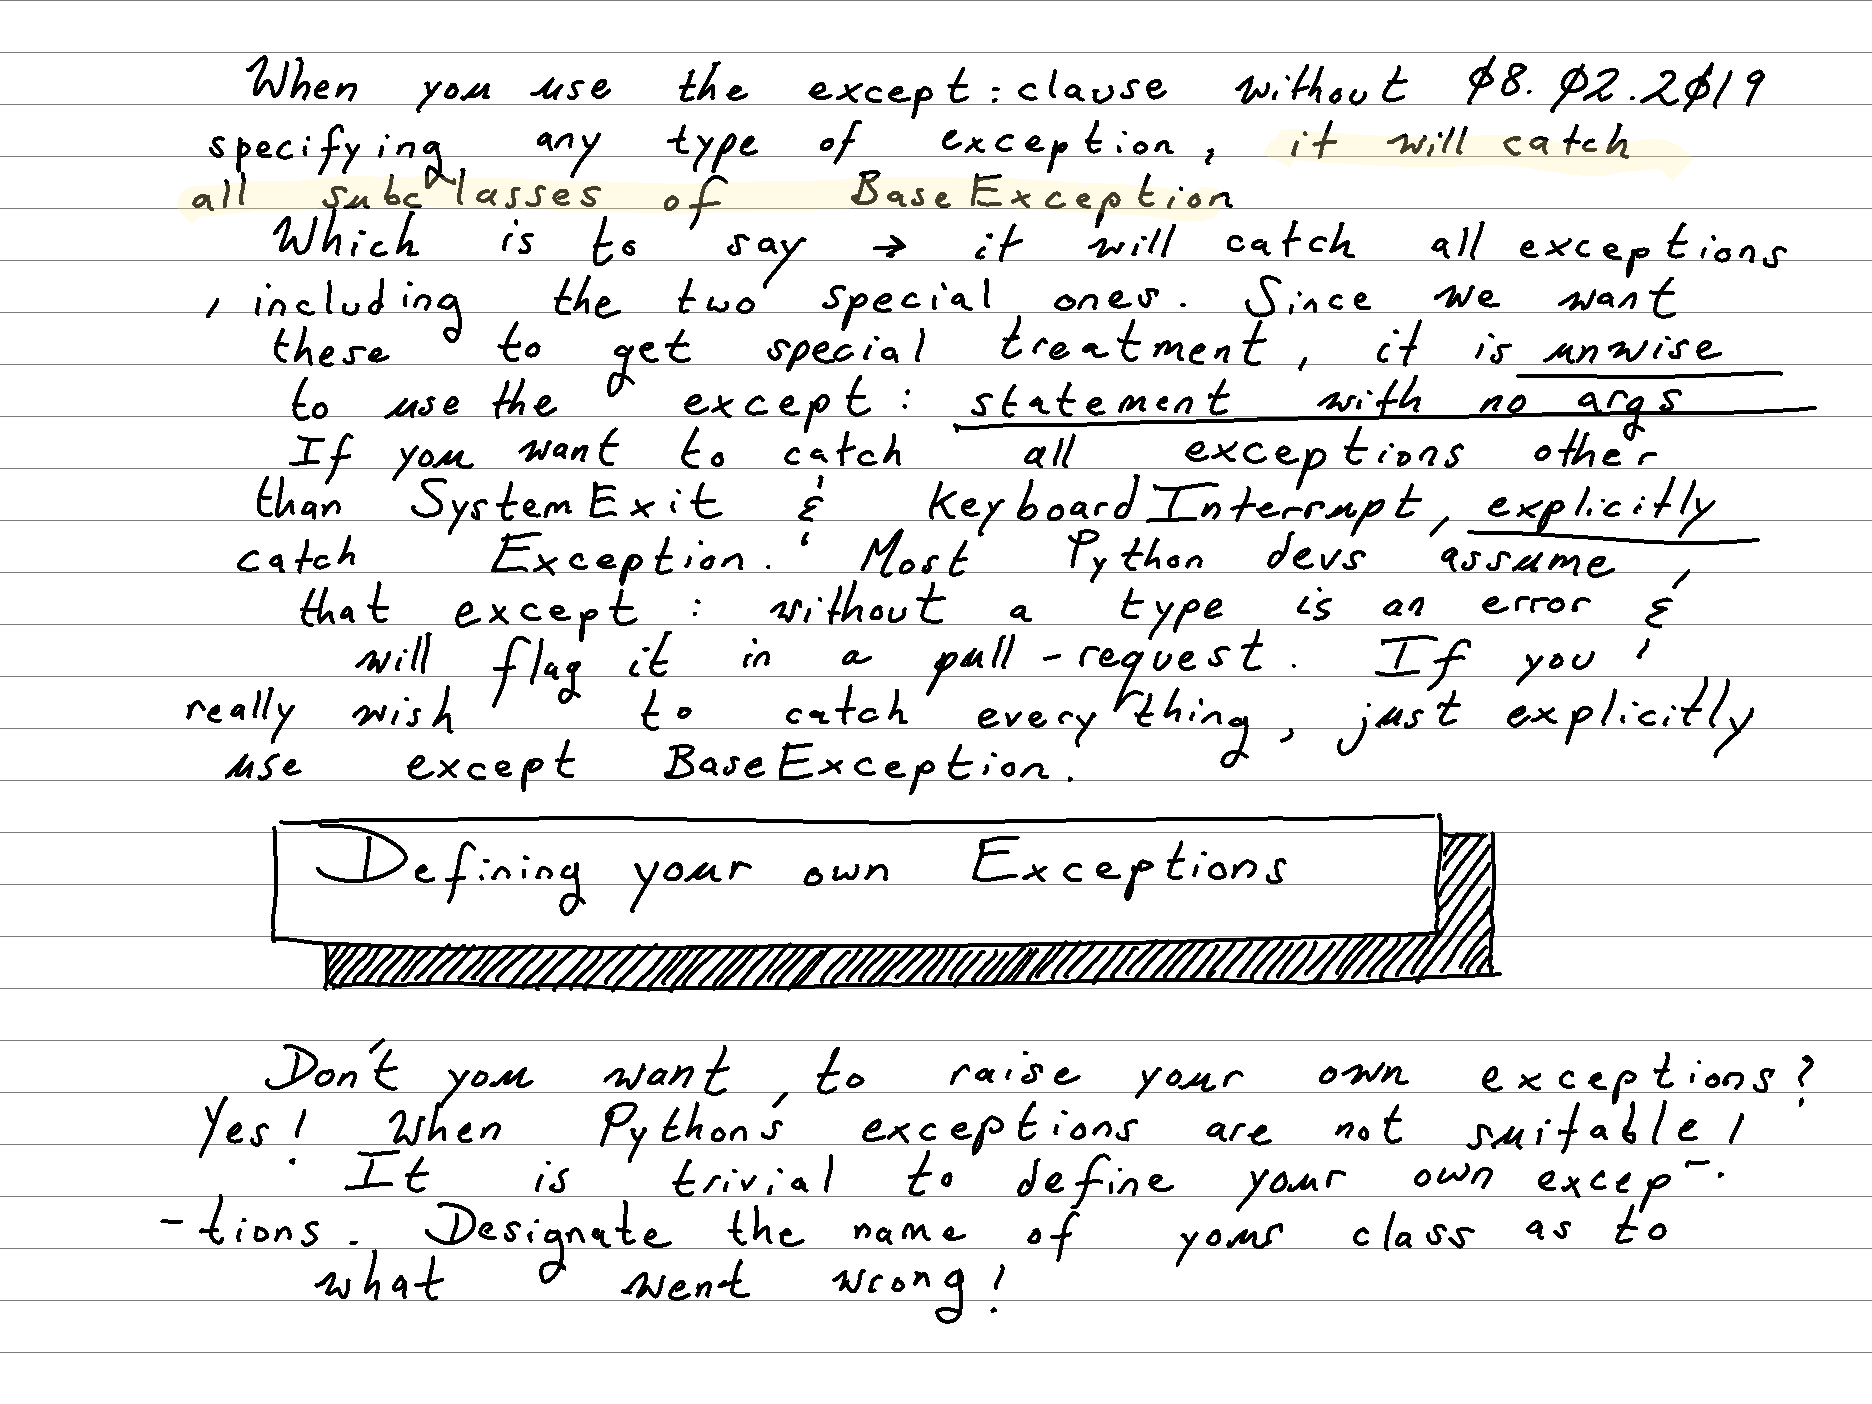 When you use the except: clause without 08.02.2019
specifying any type of exception, it will catch
all subclasses of BaseException
Which is to say → it will catch all exceptions
, including the two special ones. Since we want
these to get special treatment, it is unwise
to use the except: statement with no args
If you want to catch all exceptions other
than SystemExit & KeyboardInterrupt, explicitly
catch Exception. Most Python devs assume
that except: without a type is an error &
will flag it in a pull-request. If you
really wish to catch everything, just explicitly
use except BaseException.
Defining your own Exceptions
Don't you want to raise your own exceptions?
Yes! When Python's exceptions are not suitable!
It is trivial to define your own excep-
-tions. Designate the name of your class as to
what went wrong!